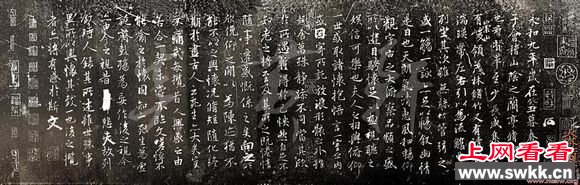 永和九年歲在癸丑暮春之初會
于會稽山陰之蘭亭脩稧事
也羣賢畢至少長咸集此地
有崇山峻領茂林脩竹又有清流激
湍暎帶左右引以為流觴曲水
列坐其次雖無絲竹管弦之
盛一觴一詠亦足以暢敘幽情
是日也天朗氣清惠風和暢仰
觀宇宙之大俯察品類之盛
所以遊目騁懷足以極視聽之
娛信可樂也夫人之相與俯仰
一世或取諸懷抱悟言一室之內
或因寄所託放浪形骸之外雖
趣舍萬殊靜躁不同當其欣
於所遇蹔得於己快然自足不
知老之將至及其所之既惓情
隨事遷感慨係之矣向之所
欣俛仰之閒以為陳迹猶不
能不以之興懷況脩短隨化終
期於盡古人云死生亦大矣豈
不痛哉每攬昔人興感之由
若合一契未嘗不臨文嗟悼不
能喻之於懷固知一死生為虛
誕齊彭殤為妄作後之視今
亦由今之視昔悲夫故列
敘時人錄其所述雖世殊事
異所以興懷其致一也後之攬
者亦將有感於斯文
上网看看
www.swkk.cn